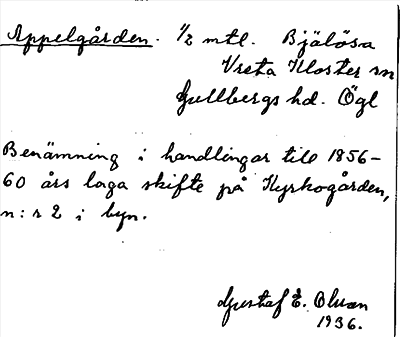 Appelgården. 1/2 mtl. Bjälösa
Vreta Kloster sn
Gullbergs hd. Ögl
Benämning i handlingar till 1856-
60 års laga skifte på Kyrkogården,
n:r 2 i byn.
Gustaf E. Olsson
1936.